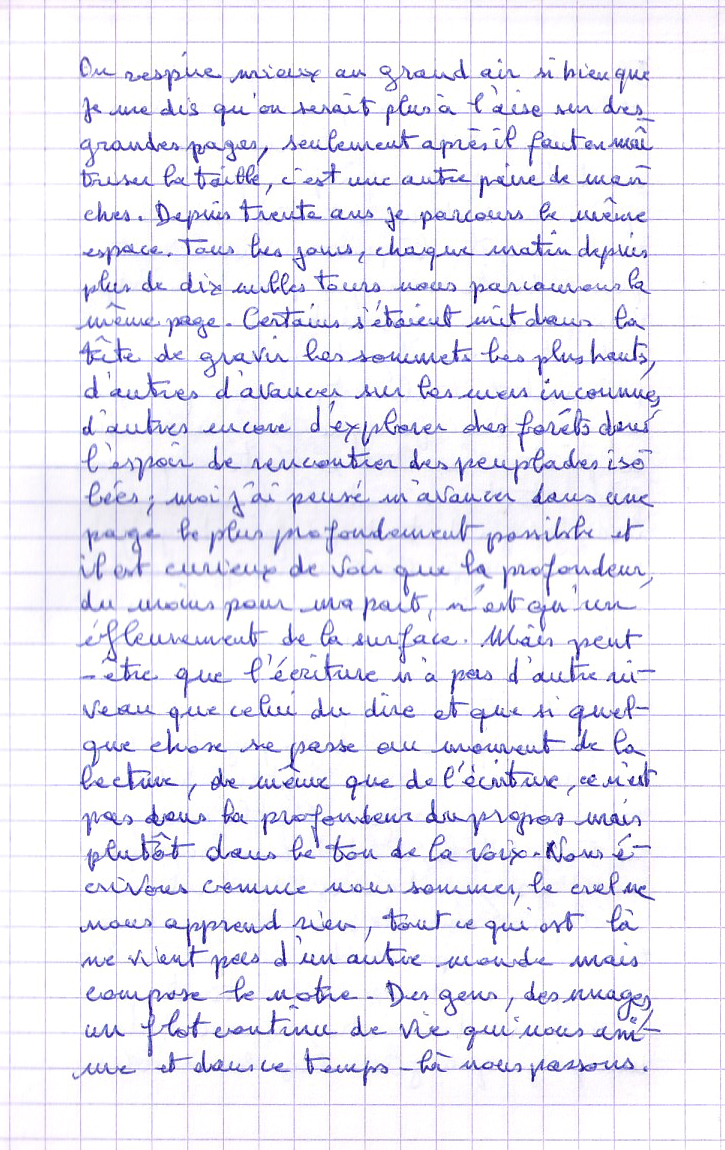 On respire mieux au grand air si bien que
je me dis qu'on serait plus à l'aise sur des
grandes pages, seulement après il faut en maî
triser la taille, c'est une autre paire de man
ches. Depuis trente ans je parcours le même
espace. Tous les jours, chaque matin depuis
plus de dix milles tours nous parcourons la
même page. Certains s'étaient mit dans la
tête de gravir les sommets les plus hauts,
d'autres d'avancer sur les mers inconnues,
d'autres encore d'explorer des forêts dans
l'espoir de rencontrer des peuplades iso
lées ; moi j'ai pensé m'avancer dans une
page le plus profondément possible et
il est curieux de voir que la profondeur,
du moins pour ma part, n'est qu'un
éfleurement de la surface. Mais peut
-être que l'écriture n'a pas d'autre ni-
veau que celui du dire et que si quel-
que chose se passe au moment de la
lecture, de même que de l'écriture, ce n'est
pas dans la profondeur du propos mais
plutôt dans le ton de la voix. Nous é-
crivons comme nous sommes, le ciel ne
nous apprend rien, tout ce qui est là
ne vient pas d'un autre monde mais
compose le notre. Des gens, des nuages,
un flot continu de vie qui nous ani-
me et dans ce temps-là nous passons.